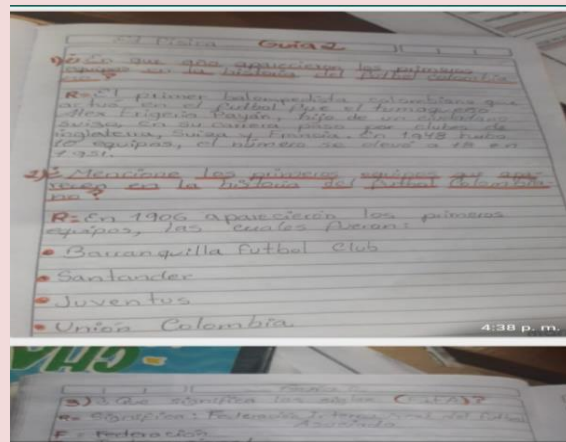 Ed Física Guia 2
1) ¿En que año aparecieron los primeros
equipos en la historia del futbol colombia
no?
R= El primer balompedista colombiano que
actuó en el futbol fue el tumaqueso
hijo de un ciudadano
suizo, en su carrera paso por clubes de
inglaterra, Suiza y Francia. En 1948 hubo
10 equipos, el número se elevó a 18 en
1.951.
2) Mencione los primeros equipos que apa-
recen en la historia del futbol Colombia
no?
R= En 1906 aparecieron los primeros
equipos, las cuales fueron:
• Barranquilla futbol Club
• Santander
• Juventus
• Unión Colombia
4:38 p. m.
3) ¿Que significa las siglas
R= Significa: Federación del futbol
Asociado
F = Federación